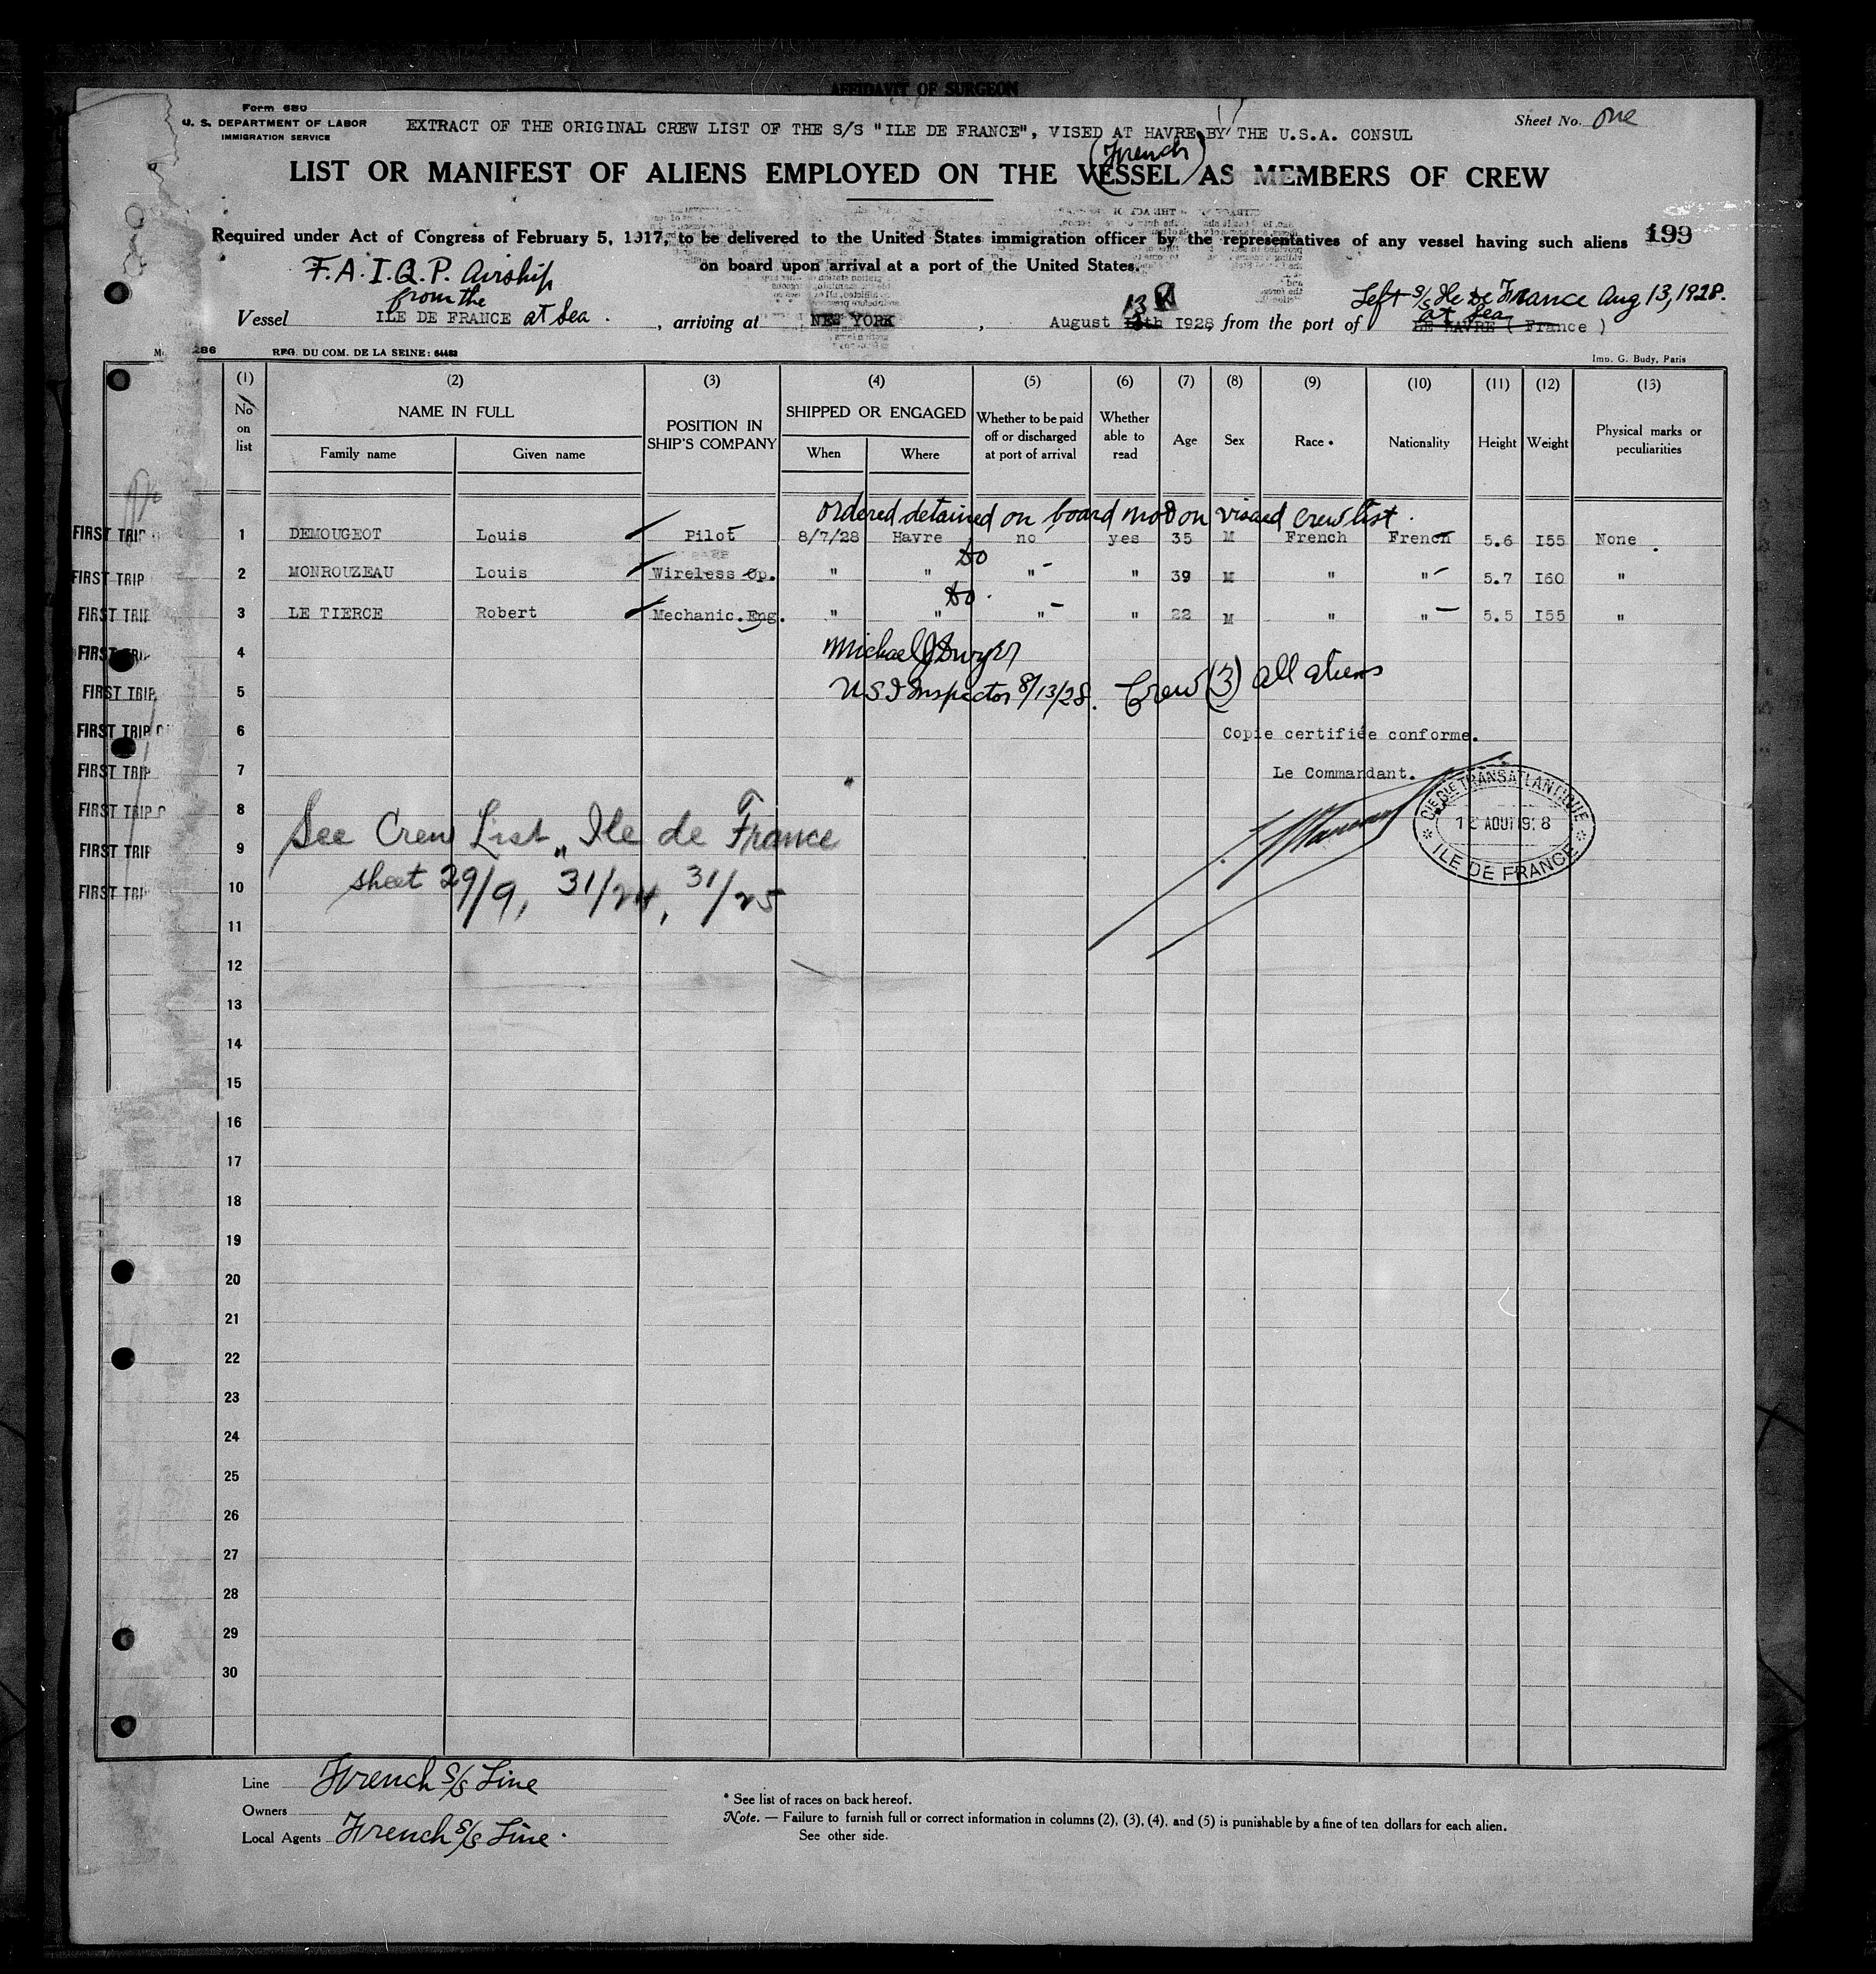 AFFIDAVIT OF SURGEON
Form 680
U. S. DEPARTMENT OF LABOR
IMMIGRATION SERVICE
EXTRACT OF THE ORIGINAL CREW LIST OF THE S/S "ILE DE FRANCE", VISED AT HAVRE BY THE U.S.A. CONSUL
Sheet No. One
(French)
LIST OR MANIFEST OF ALIENS EMPLOYED ON THE VESSEL AS MEMBERS OF CREW
Required under Act of Congress of February 5, 1917, to be delivered to the United States immigration officer by the representatives of any vessel having such aliens
199
on board upon arrival at a port of the United States.
F.A.I.Q.P. Airship
from the
Left S/S Ile De France Aug 13, 1928.
13
at Sea
Vessel ILE DE FRANCE at Sea. , arriving at NEW YORK , August 14th I928, from the port of LE HAVRE ( France )
286
REG. DU COM. DE LA SEINE: 64483
Imp. G. Budy, Paris
(1) (2) (3) (4) (5) (6) (7) (8) (9) (10) (11) (12) (13)
No on list
NAME IN FULL
Family name
Given name
POSITION IN SHIP'S COMPANY
SHIPPED OR ENGAGED
When
Where
Whether to be paid off or discharged at port of arrival
Whether able to read
Age
Sex
Race *
Nationality
Height
Weight
Physical marks or peculiarities
ordered detained on board mod on visaed crew list.
FIRST TRIP 1 DEMOUGEOT Louis Pilot 8/7/28 Havre no yes 35 M French French 5.6 I55 None
Do
FIRST TRIP 2 MONROUZEAU Louis Wireless Op. " " " " 39 M " " 5.7 I60 "
Do.
FIRST TRIP 3 LE TIERCE Robert Mechanic.Eng. " " " " 22 M " " 5.5 I55 "
FIRST TRIP 4 Michael J Dwyer
FIRST TRIP 5 U S I Inspector 8/13/28. Crew (3) all aliens
FIRST TRIP 6 Copie certifiée conforme.
FIRST TRIP 7 Le Commandant.
CIE GLE TRANSATLANTIQUE
12 AOUT 1928
ILE DE FRANCE
FIRST TRIP 8
See Crew List "Ile de France
FIRST TRIP 9
sheet 29/9, 31/24, 31/25
FIRST TRIP 10
11
12
13
14
15
16
17
18
19
20
21
22
23
24
25
26
27
28
29
30
Line French S/S Line
Owners
Local Agents French S/S Line.
* See list of races on back hereof.
Note. — Failure to furnish full or correct information in columns (2), (3), (4), and (5) is punishable by a fine of ten dollars for each alien.
See other side.